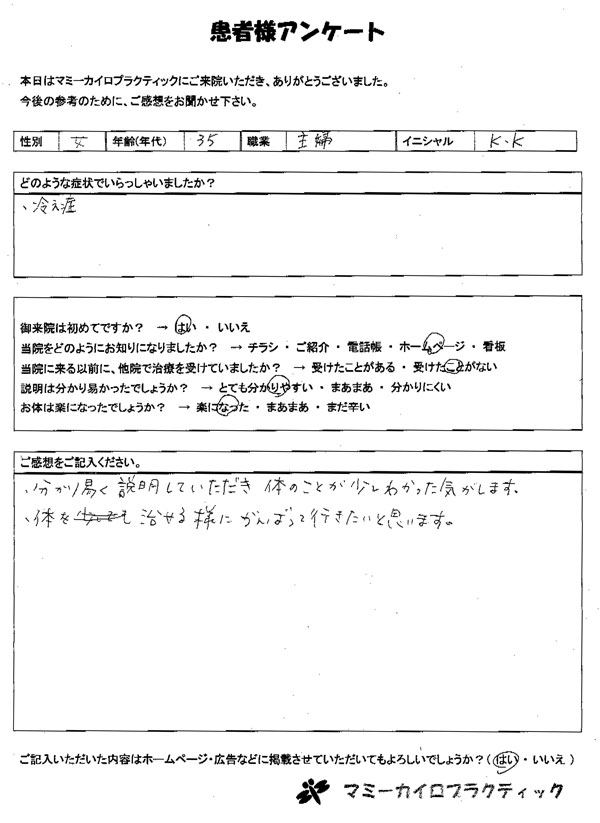 患者様アンケート
本日はマミーカイロプラクティックにご来院いただき、ありがとうございました。
今後の参考のために、ご感想をお聞かせ下さい。
性別 女 年齢(年代) 35 職業 主婦 イニシャル K.K
どのような症状でいらっしゃいましたか?
、冷え症
御来院は初めてですか? → はい ・ いいえ
当院をどのようにお知りになりましたか? → チラシ ・ ご紹介 ・ 電話帳 ・ ホームページ ・ 看板
当院に来る以前に、他院で治療を受けていましたか? → 受けたことがある ・ 受けたことがない
説明は分かり易かったでしょうか? → とても分かりやすい ・ まあまあ ・ 分かりにくい
お体は楽になったでしょうか? → 楽になった ・ まあまあ ・ まだ辛い
ご感想をご記入ください。
、分かり易く説明していただき 体のことが少しわかった気がします。
、体を 治せる様に がんばって行きたいと思います。
ご記入いただいた内容はホームページ・広告などに掲載させていただいてもよろしいでしょうか?( はい ・ いいえ )
マミーカイロプラクティック